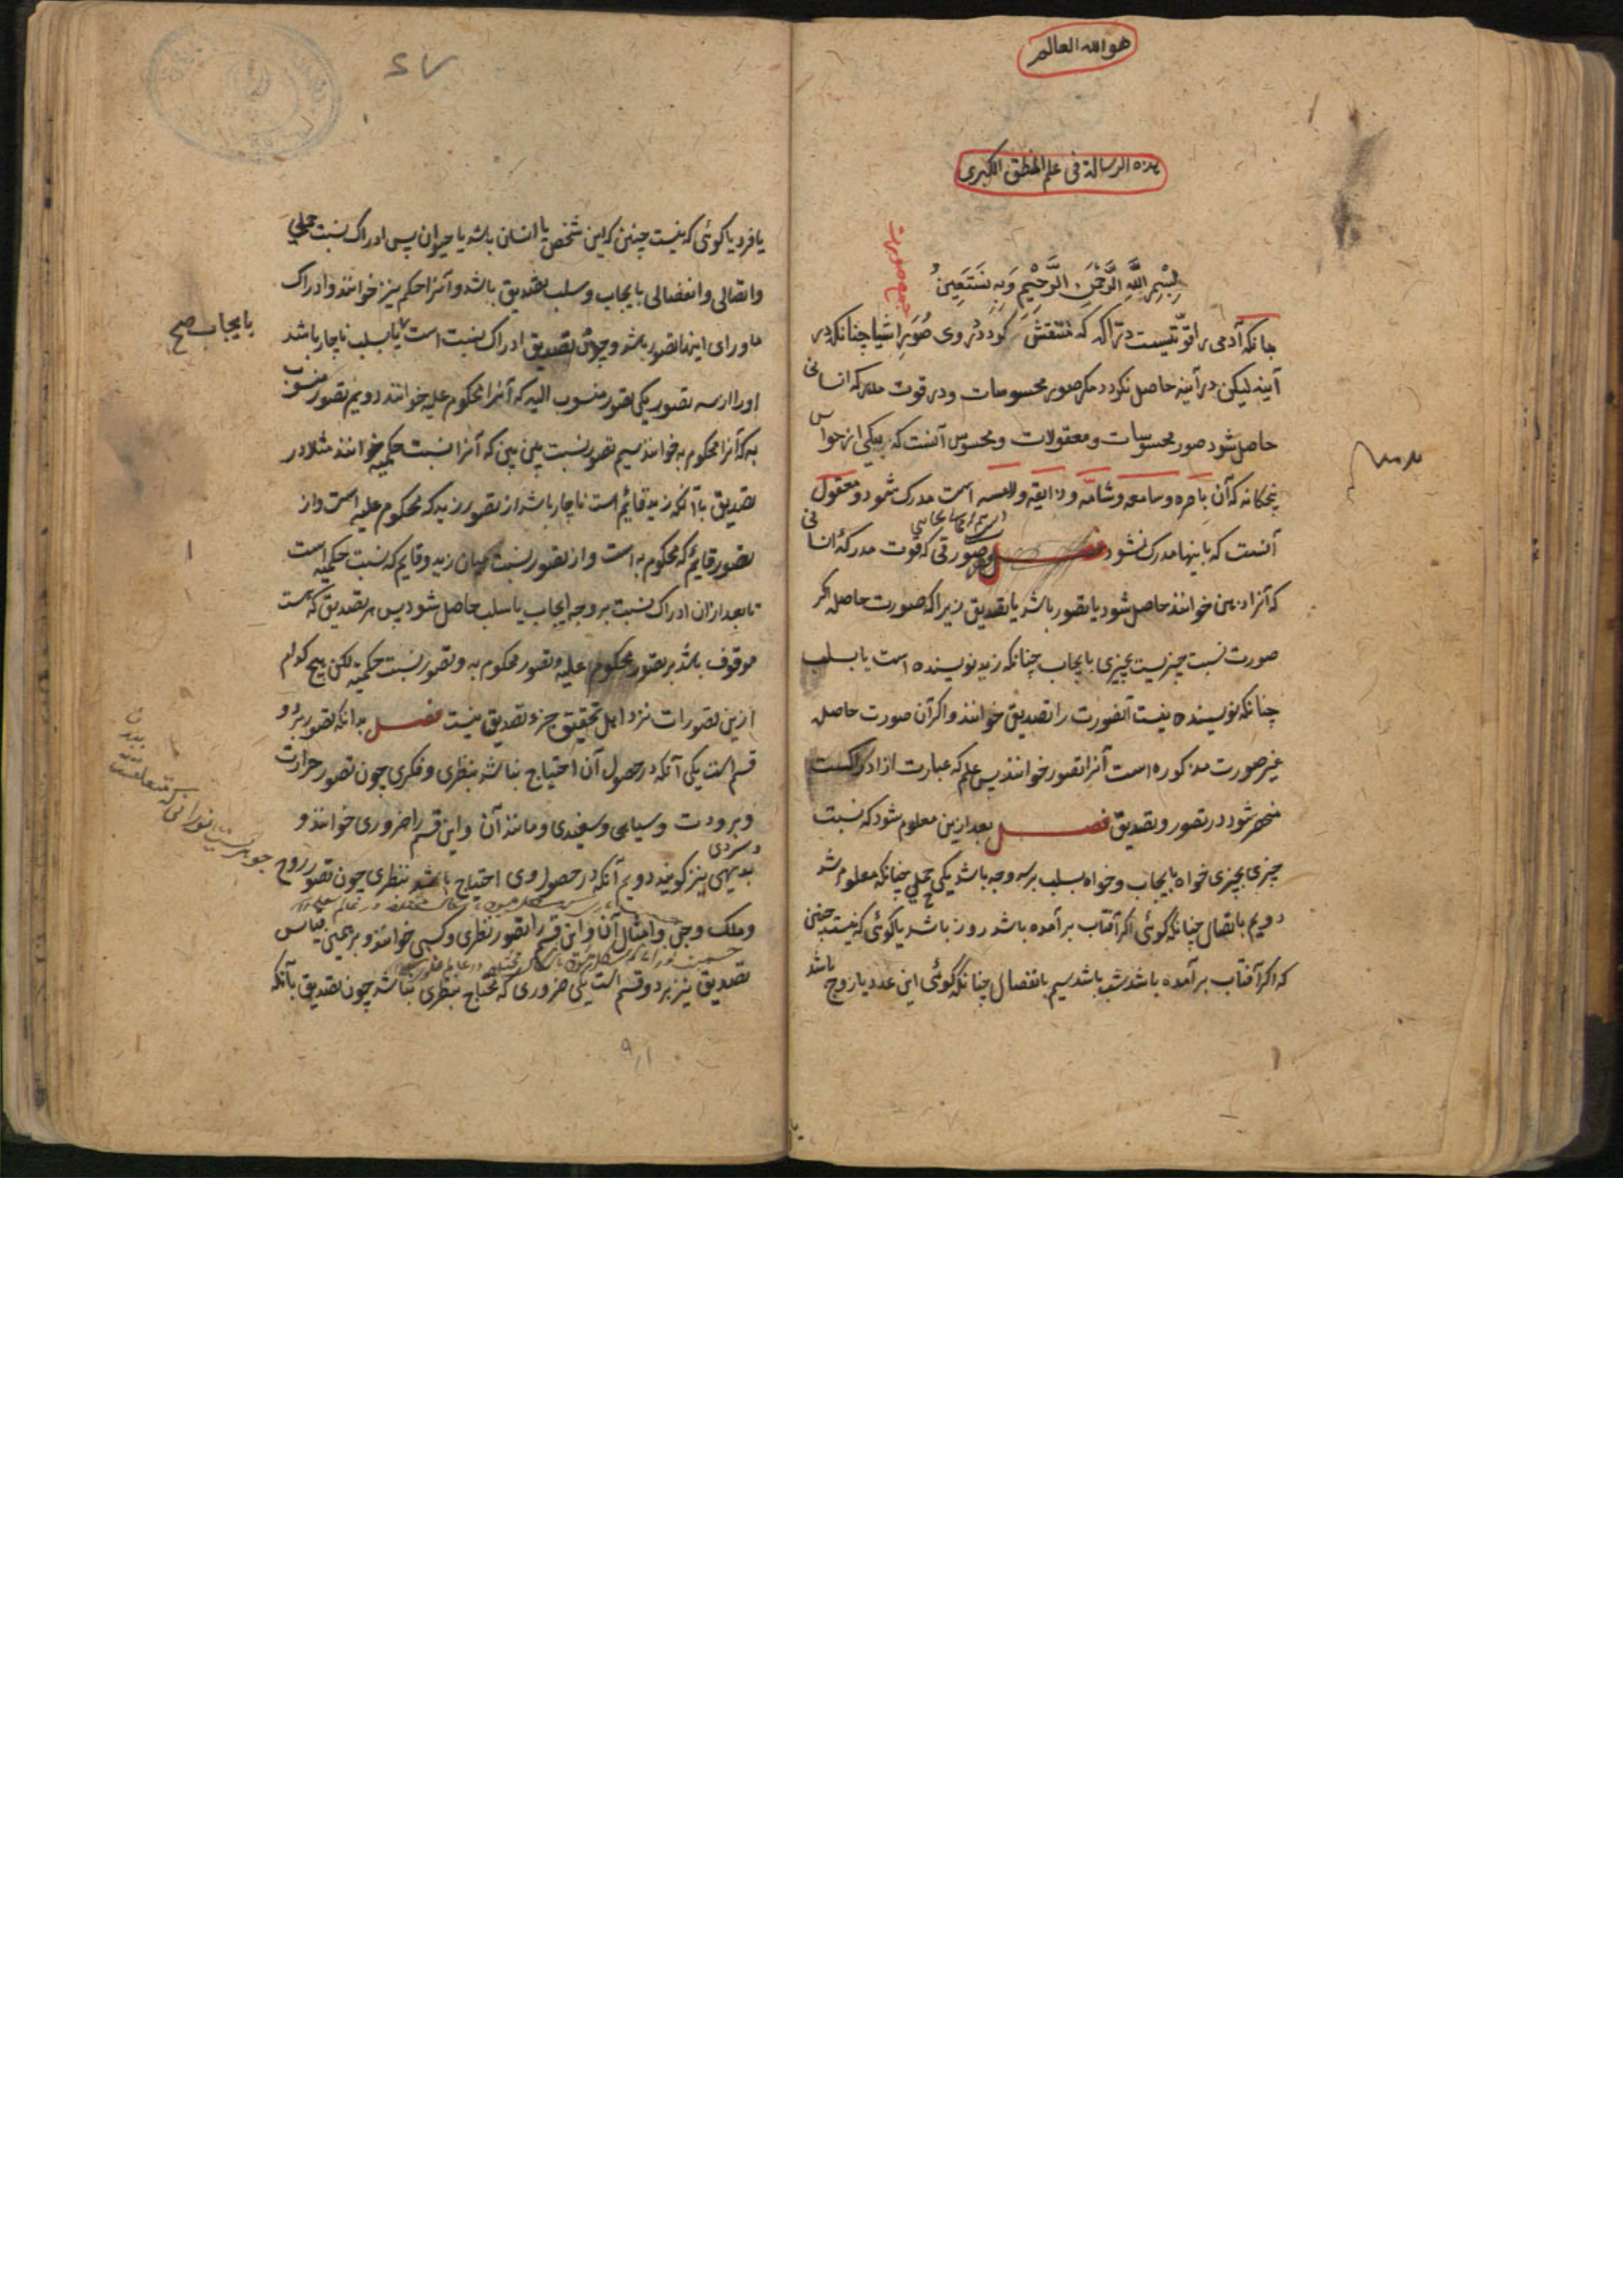 هو الله العالم
هذه الرسالة فی علم المنطق الکبری
بِسْمِ اللّٰهِ الرَّحْمٰنِ الرَّحِیْمِ وَبِهِ نَسْتَعِیْنُ
بدانکه آدمی را قوّتیست درّاکه که منتقش گردد دروی صُوَرِ اشیا چنانکه در
آینه لیکن در آینه حاصل نکردد مکر صور محسوسات و در قوت مدرکه انسانی
حاصل شود صور محسوسات و معقولات و محسوس آنست که بیکی از حواس
پنجکانه که آن باصره و سامعه و شامّه و ذایقه و لامسه است مدرک شود و معقول
آنست که باینها مدرک نشود فصل هر صورتی که قوت مدرکهٔ انسانی
که آنرا ذهن خوانند حاصل شود یا تصور باشد یا تصدیق زیرا که صورت حاصله اکر
صورت نسبت چیزیست بچیزی بایجاب چنانکه زید نویسنده است یا بسلب
چنانکه نویسنده نیست آنصورت را تصدیق خوانند و اکر آن صورت حاصله
غیر صورت مذکوره است آنرا تصور خوانند پس علم که عبارت از ادراکست
منحصر شود در تصور و تصدیق فصل بعد ازین معلوم شود که نسبت
چیزی بچیزی خواه بایجاب و خواه بسلب بر سه وجه باشد یکی حملی چنانکه معلوم شد
دویم باتصال چنانکه کوئی اکر آفتاب برآمده باشد روز باشد یا کوئی که نیست چنین
که اکر آفتاب برآمده باشد شب باشد سیم بانفصال چنانکه کوئی این عدد یا زوج باشد
یا فرد یا کوئی که نیست چنین که این شخص یا انسان باشد یا حیوان پس ادراک نسبت حملی
و اتصالی و انفصالی بایجاب و سلب تصدیق باشد و آنرا حکم نیز خوانند و ادراک
ماورای اینها تصور باشد و چون تصدیق ادراک نسبت است یا بسلب ناچار باشد
بایجاب صح
او را از سه تصور یکی تصور منسوب الیه که آنرا محکوم علیه خوانند دویم تصور منسوب
به که آنرا محکوم به خوانند سیم تصور نسبت بین بین که آنرا نسبت حکمیه خوانند مثلا در
تصدیق بآنکه زید قایٔم است ناچار باشد از تصور زید که محکوم علیه است و از
تصور قایٔم که محکوم به است و از تصور نسبت میان زید و قایم که نسبت حکمیه است
تا بعد ازان ادراک نسبت بر وجه ایجاب یا سلب حاصل شود پس هر تصدیق که هست
موقوف باشد بر تصور محکوم علیه و تصور محکوم به و تصور نسبت حکمیه لکن هیچ کدام
ازین تصورات نزد اهل تحقیق جزء تصدیق نیست فصل بدانکه تصور بر دو
قسم است یکی آنکه در حصول آن احتیاج نباشد بنظری و فکری چون تصور حرارت
و برودت و سیاهی و سفیدی و مانند آن و این قسم را ضروری خوانند و
بدیهی نیز کویند دویم آنکه در حصول وی احتیاج باشد بنظری چون تصور روح
و ملک و جن و امثال آن و این قسم را تصور نظری و کسبی خوانند و بر همین قیاس
تصدیق نیز بر دو قسم است یکی ضروری که محتاج بنظری نباشد چون تصدیق بآنکه